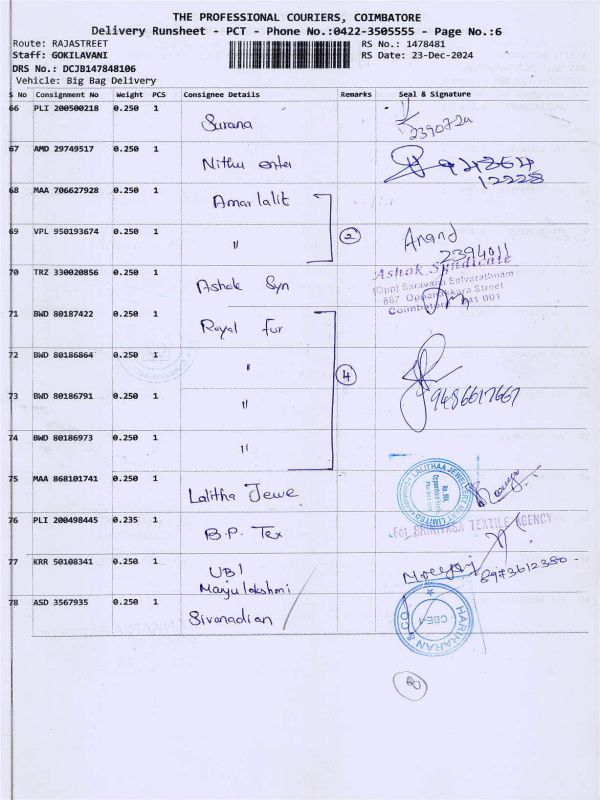 THE PROFESSIONAL COURIERS, COIMBATORE
Delivery Runsheet - PCT - Phone No.:0422-3505555 - Page No.:6
Route: RAJASTREET RS No.: 1478481
Staff: GOKILAVANI RS Date: 23-Dec-2024
DRS No.: DCJB147848106
Vehicle: Big Bag Delivery
S No Consignment No Weight PCS Consignee Details Remarks Seal & Signature
66 PLI 200500218 0.250 1 Surana
67 AMD 29749517 0.250 1 Nithu enter
68 MAA 706627928 0.250 1 Amar lalit
69 VPL 950193674 0.250 1 " 2 Anand
2394011
70 TRZ 330020856 0.250 1 Ashok Syn Ashok Syndicate
(Opp) Saravana Selvarathnam
667 Oppanakkara Street
Coimbatore 641 001
71 BWD 80187422 0.250 1 Royal fur
72 BWD 80186864 0.250 1 " 4
73 BWD 80186791 0.250 1 " 9486617667
74 BWD 80186973 0.250 1 "
75 MAA 868101741 0.250 1 Lalitha Jewe
76 PLI 200498445 0.235 1 B.P. Tex For SRINIVASA TEXTILE AGENCY
77 KRR 50108341 0.250 1 UBI
Manju lakshmi 8973612380
78 ASD 3567935 0.250 1 Sivanadian HARIHARAN & CO.
CBE-1